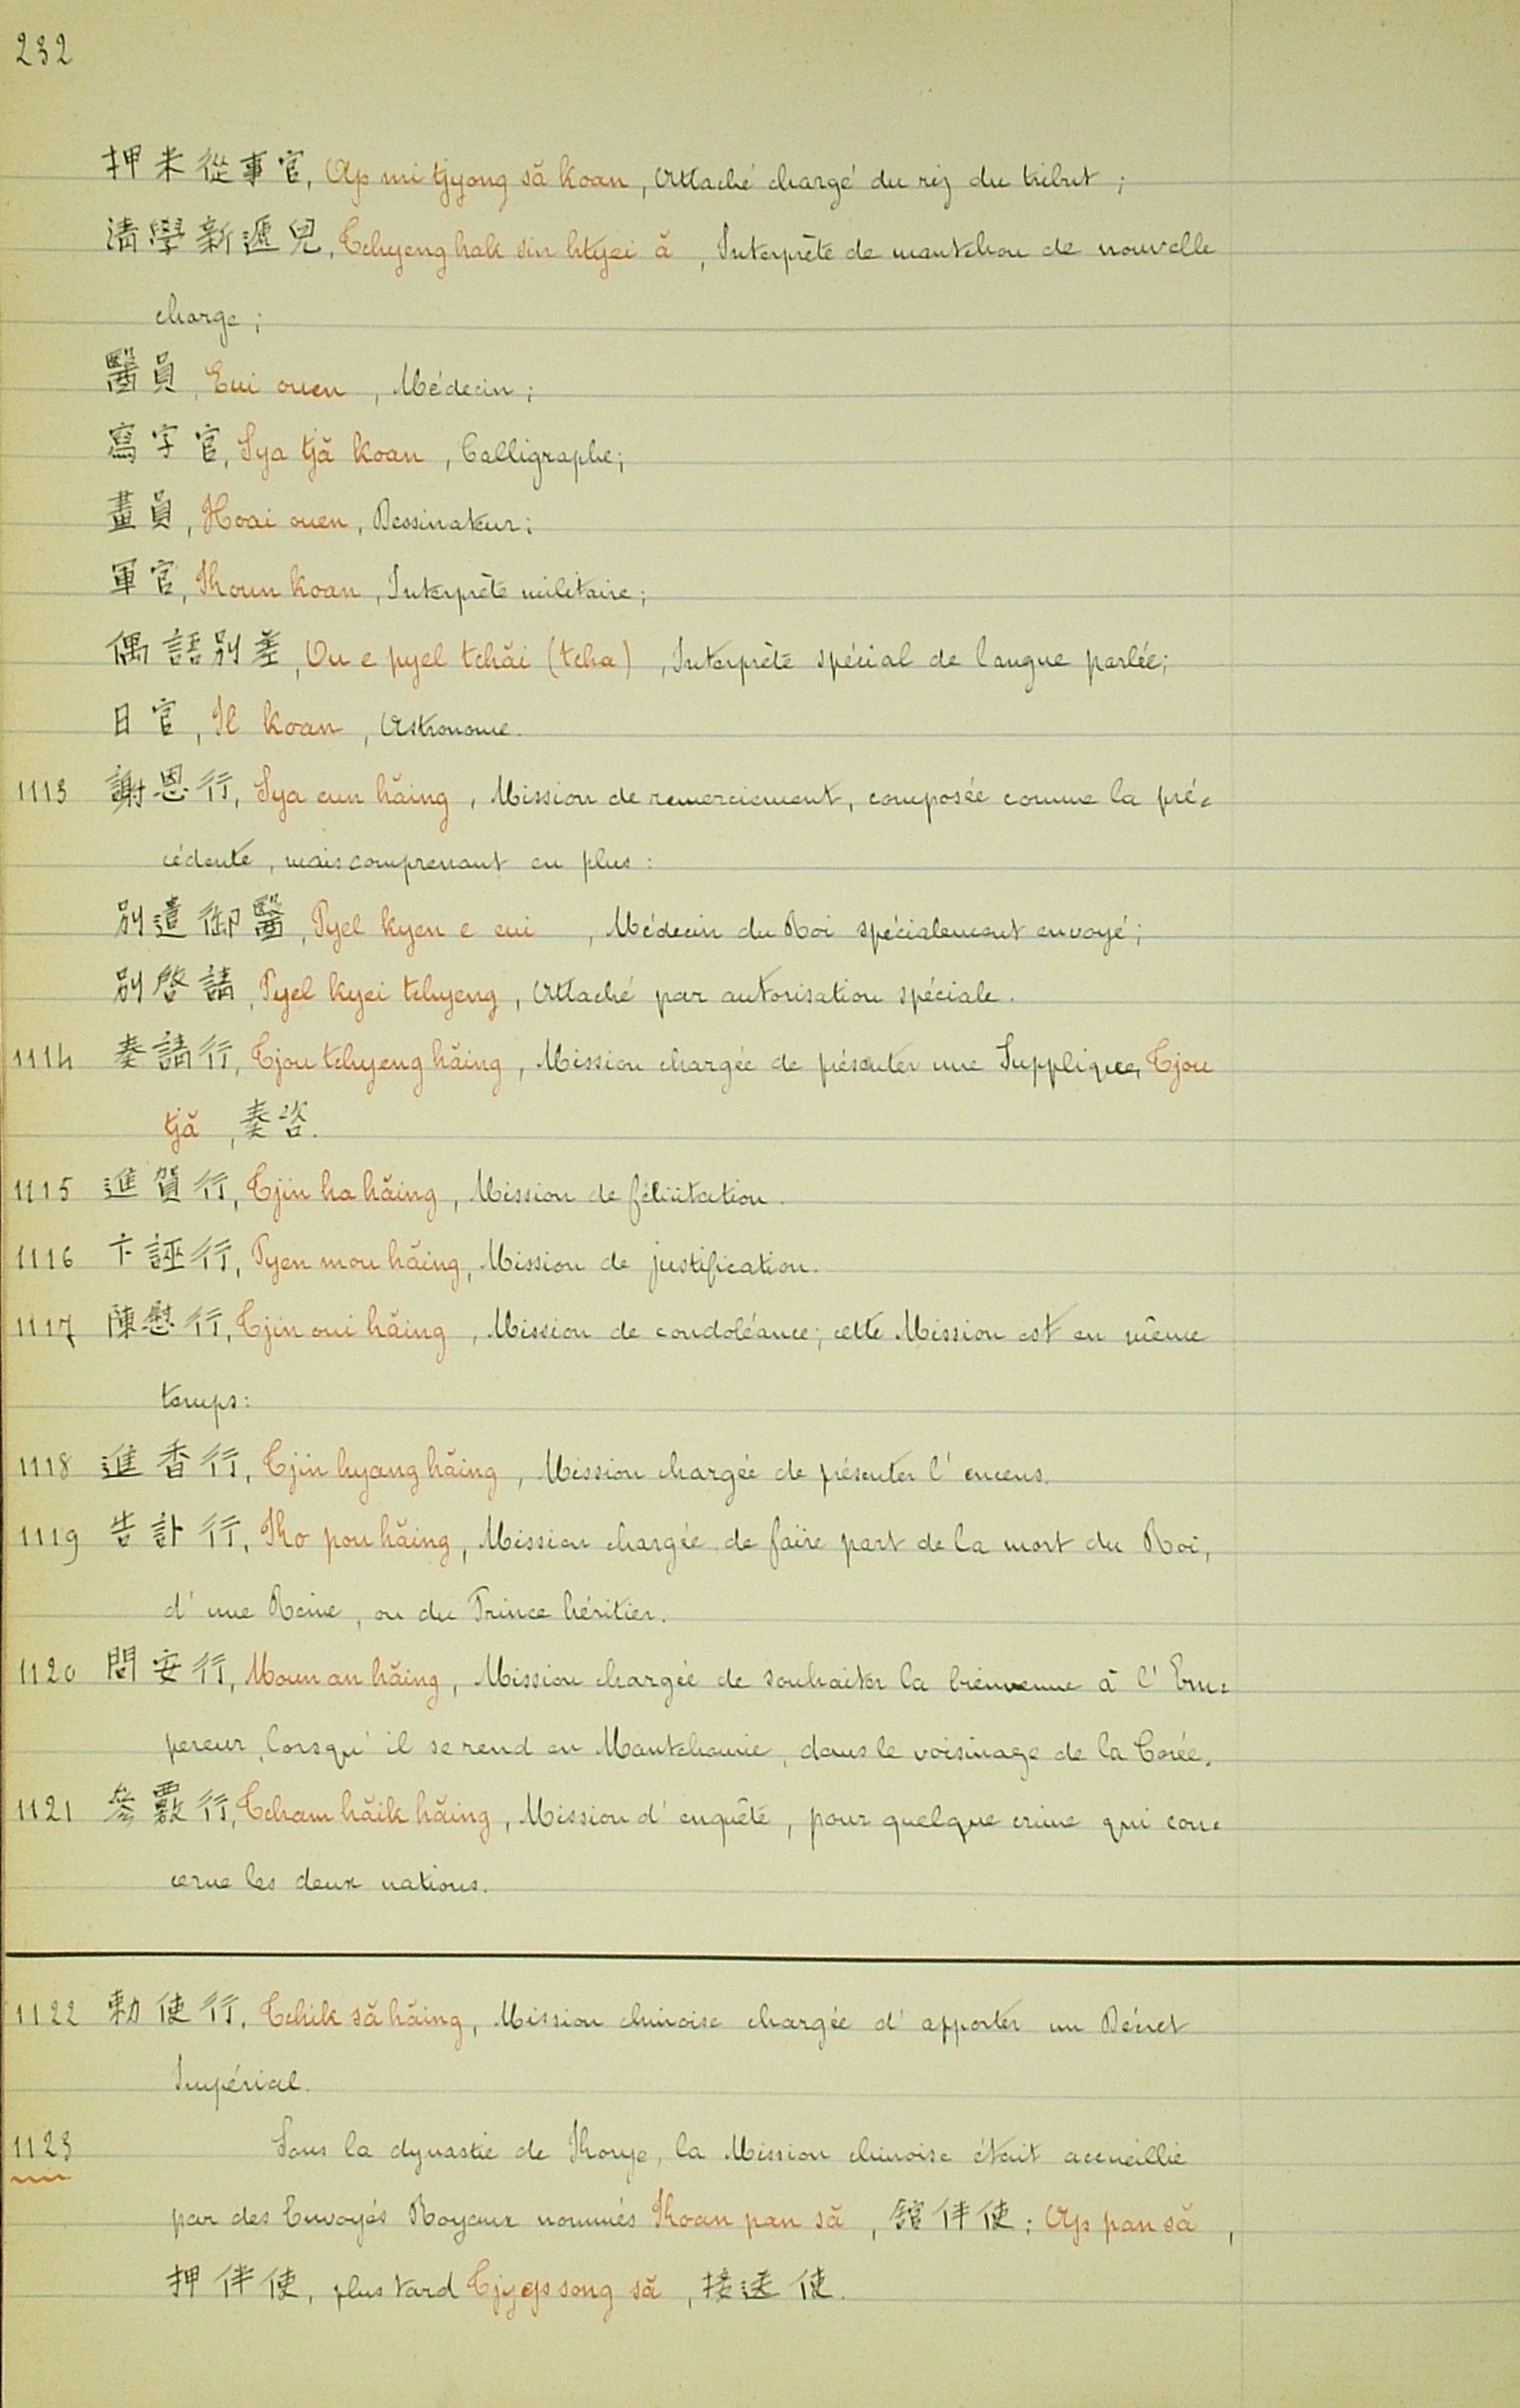 232
押米從事官, Ap mi tjyong să koan, Attaché chargé du riz du tribut;
清學新遞兒, Tchyeng hak sin htyei ă, Interprète de mantchou de nouvelle
charge;
醫員, Eui ouen, Médecin;
寫字官, Sya tjă koan, Calligraphe;
畫員, Hoai ouen, Dessinateur;
軍官, Koun koan, Interprète militaire;
偶語別差, Ou e pyel tchăi (tcha), Interprète spécial de langue parlée;
日官, Il koan, Astronome.
1113 謝恩行, Sya eun hăing, Mission de remerciement, composée comme la pré=
cédente, mais comprenant en plus:
別遣御醫, Pyel kyen e eui, Médecin du Roi spécialement envoyé;
別啓請, Pyel kyei tchyeng, Attaché par autorisation spéciale.
1114 奏請行, Tjou tchyeng hăing, Mission chargée de présenter une Supplique, Tjou
tjă, 奏咨.
1115 進賀行, Tjin ha hăing, Mission de félicitation.
1116 卞誣行, Pyen mou hăing, Mission de justification.
1117 陳慰行, Tjin oui hăing, Mission de condoléance; cette Mission est en même
temps:
1118 進香行, Tjin hyang hăing, Mission chargée de présenter l'encens.
1119 告訃行, Ko pou hăing, Mission chargée de faire part de la mort du Roi,
d'une Reine, ou du Prince héritier.
1120 問安行, Moun an hăing, Mission chargée de souhaiter la bienvenue à l'Em=
pereur, lorsqu'il se rend en Mantchourie, dans le voisinage de la Corée.
1121 參覈行, Tcham hăik hăing, Mission d'enquête, pour quelque crime qui con=
cerne les deux nations.
1122 勅使行, Tchik să hăing, Mission chinoise chargée d'apporter un Décret
Impérial.
1123 Sous la dynastie de Korye, la Mission chinoise était accueillie
par des Envoyés Royaux nommés Koan pan să, 舘伴使; Ap pan să,
押伴使, plus tard Tjyep song să, 接送使.